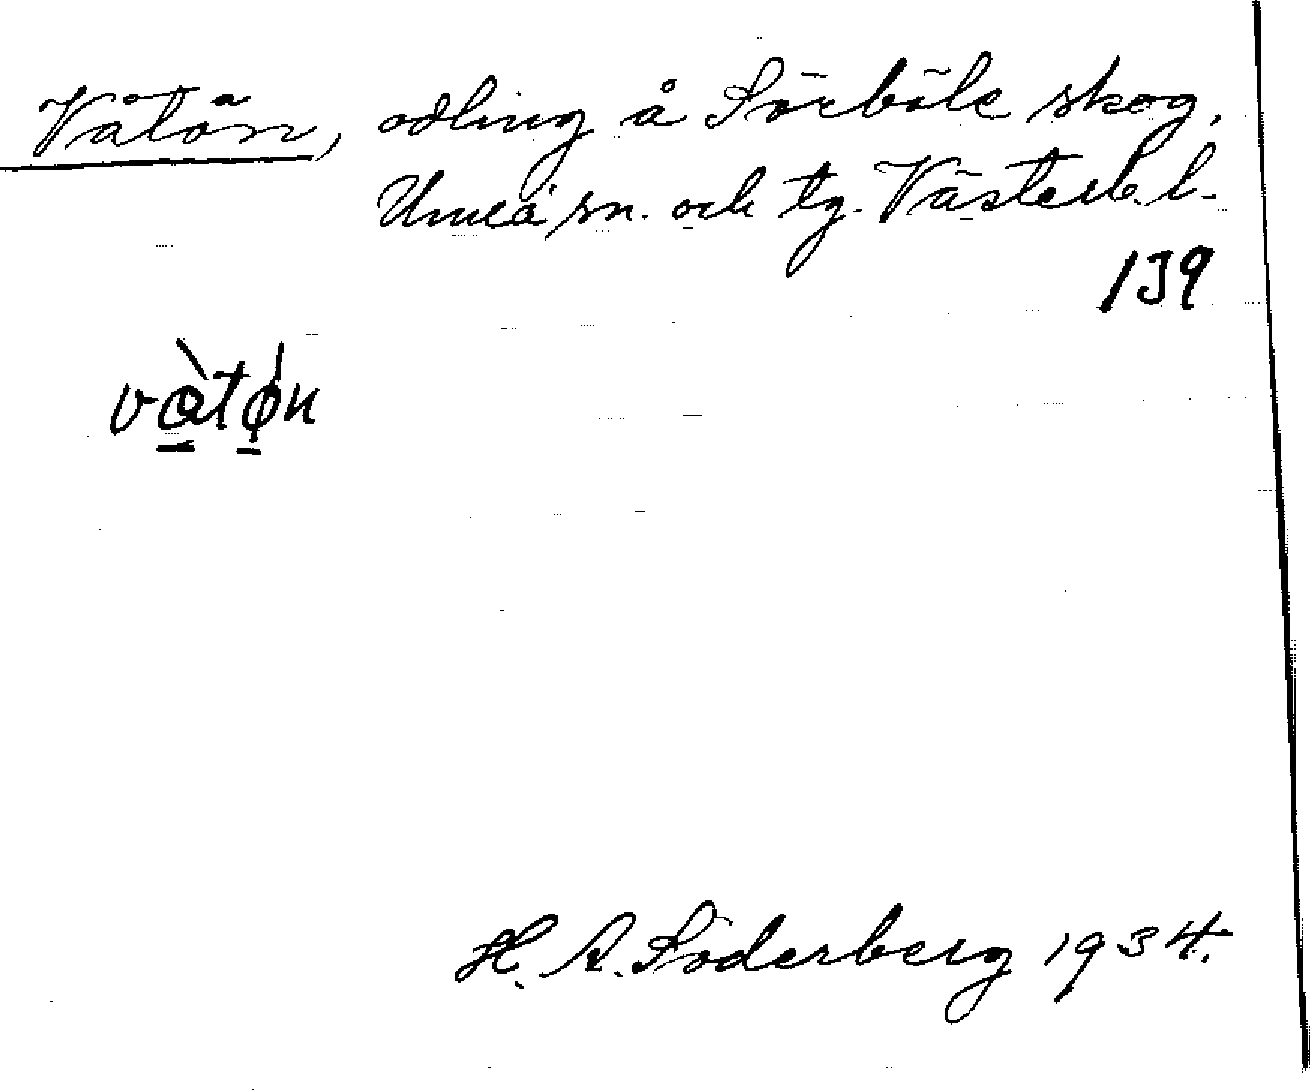 Våtön, odling å Sörböle skog,
Umeå sn. och tg. Västerb. l.
139
våtøn
H. A. Söderberg 1934.